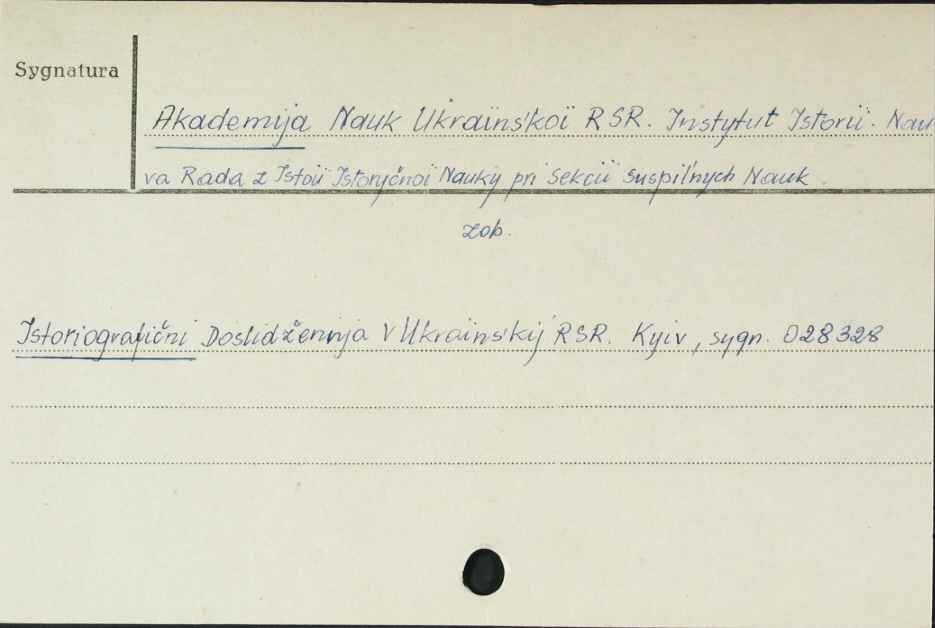 Sygnatura
Akademija Nauk Ukraïns'koï RSR. Instytut Istoriï. Nau
va Rada z Istoiï Istoryčnoï Nauky pri Sekciï Suspil'nych Nauk.
zob.
Istoriografični Doslidžennja v Ukraïns'kij RSR. Kyiv, sygn. 028328